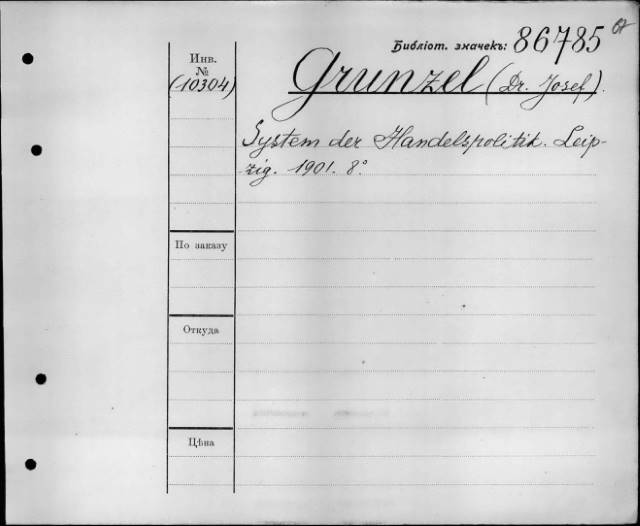 Библіот. значекъ: 86785
Инв.
№
(10304)
Grunzel (Dr. Josef).
System der Handelspolitik. Leip-
zig. 1901. 8°
По заказу
Откуда
Цѣна